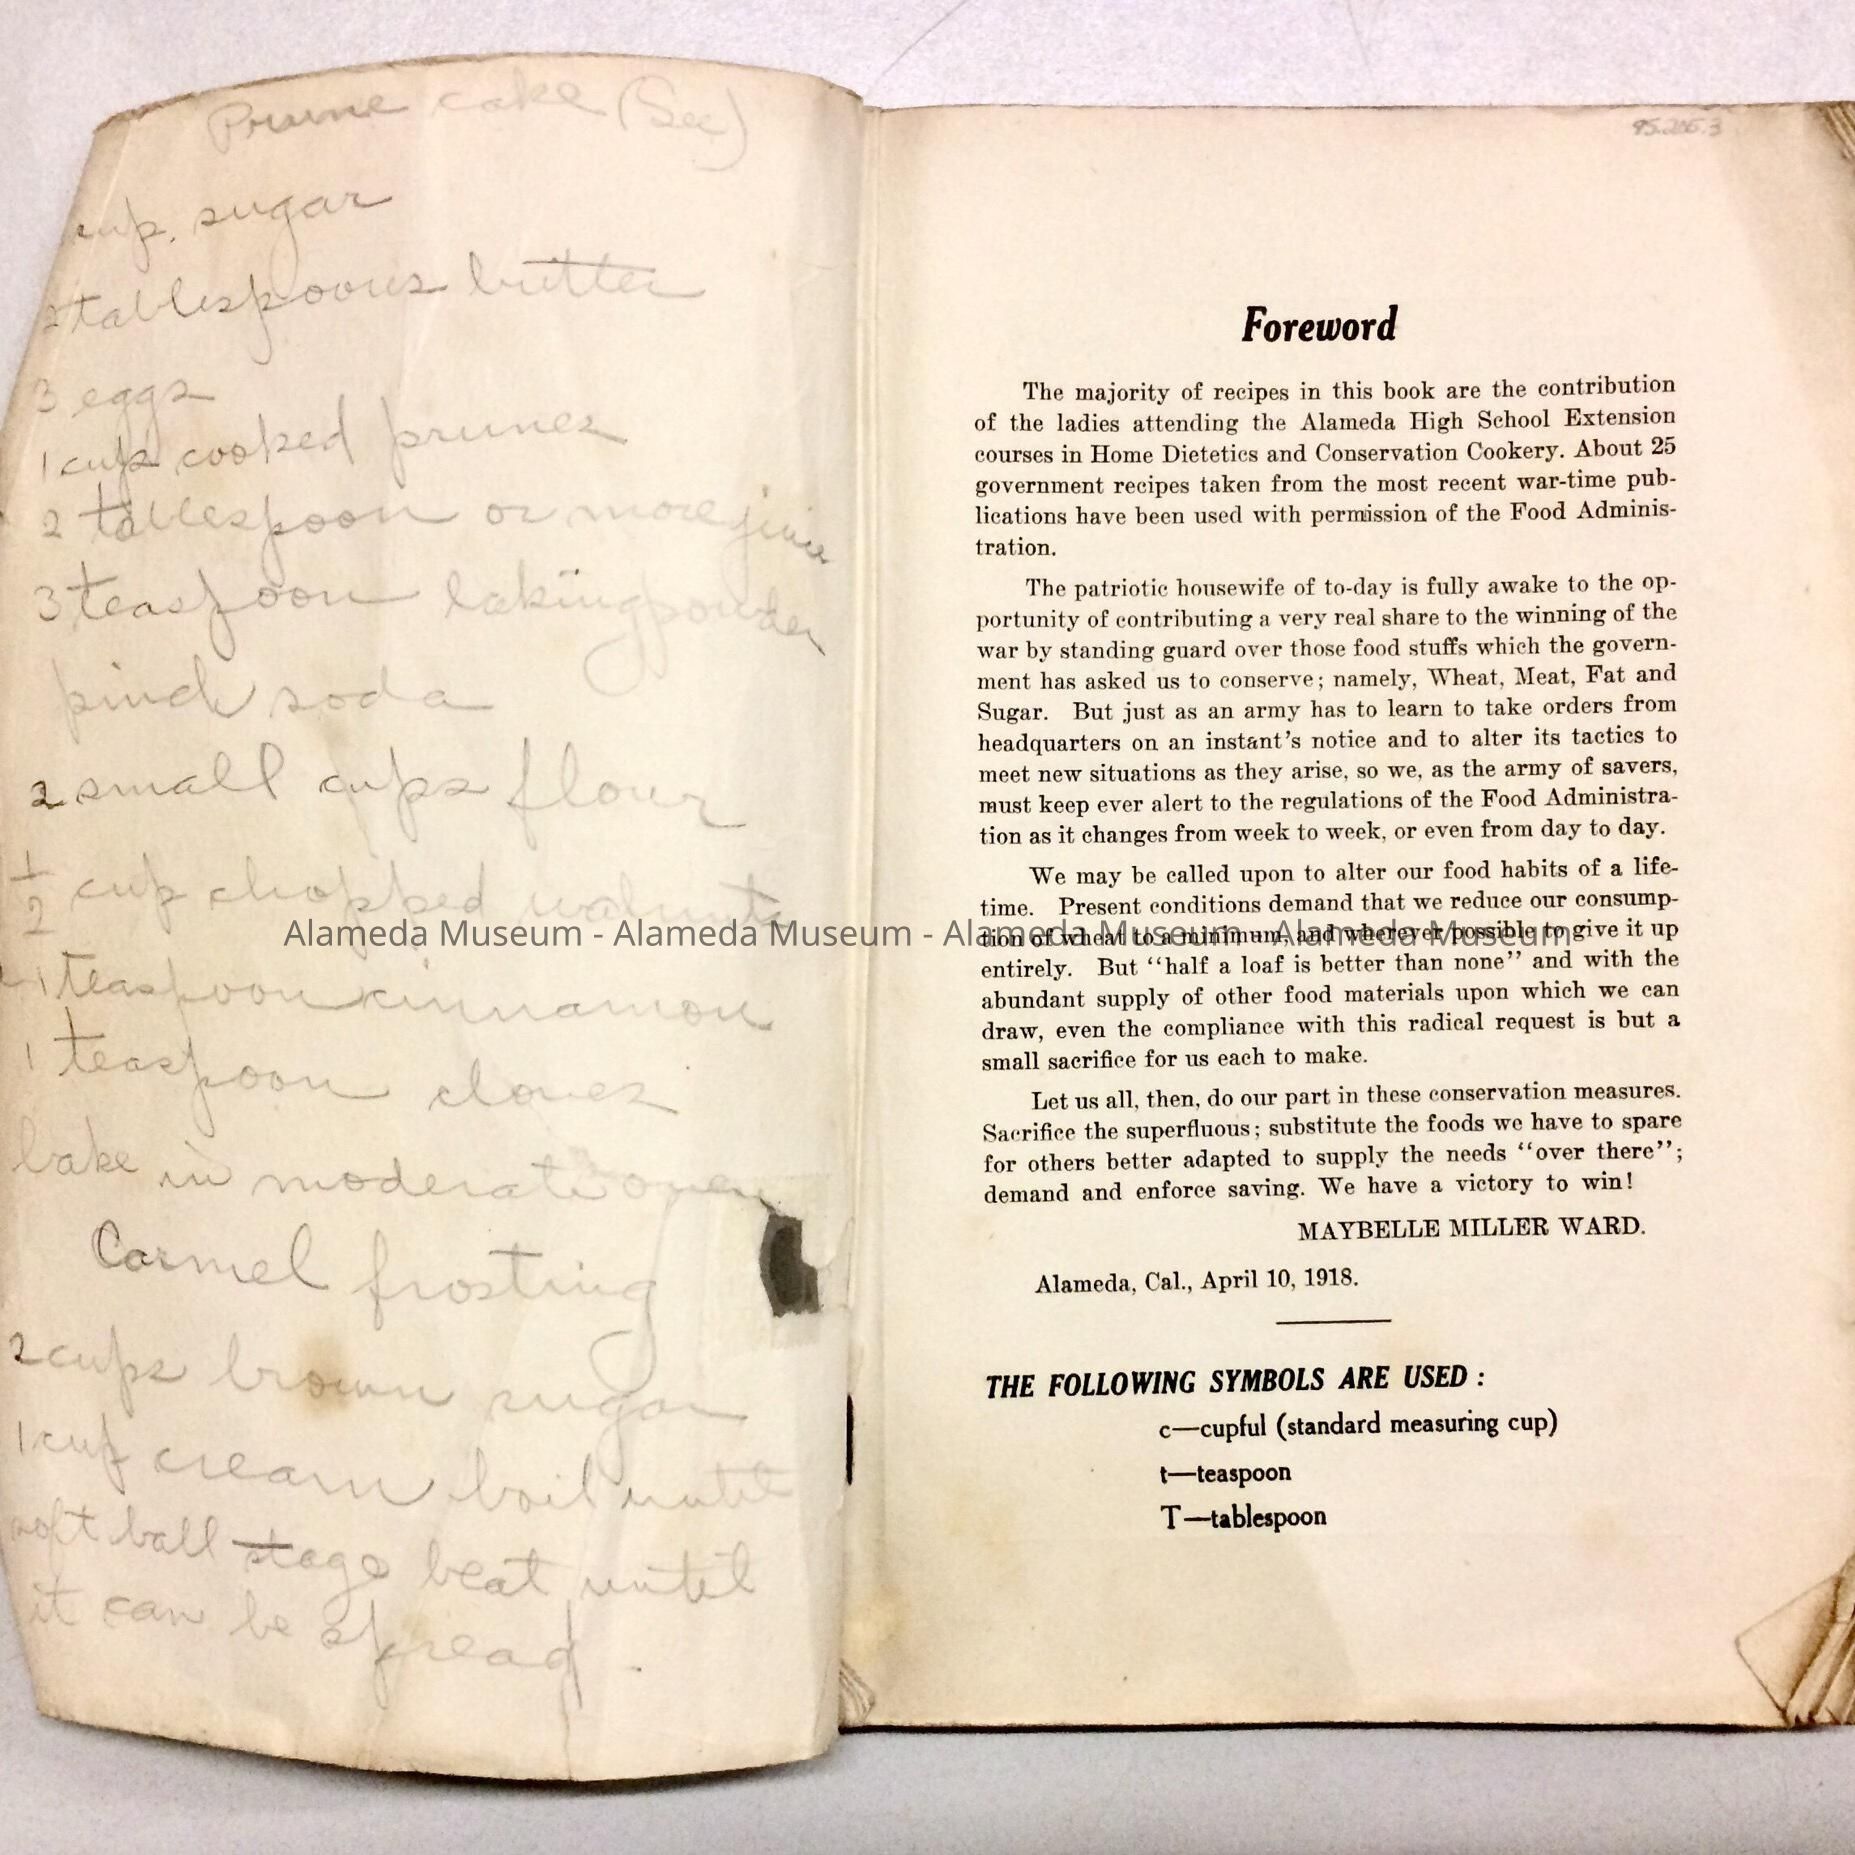 Prune cake (See)
cup. sugar
2 tablespoons butter
3 eggs
1 cup cooked prunes
2 tablespoon or more juice
3 teaspoon baking powder
pinch soda
2 small cups flour
1/2 cup chopped walnuts
1 teaspoon cinnamon
1 teaspoon cloves
bake in moderate oven
Carmel frosting
2 cups brown sugar
1 cup cream boil until
soft ball stage beat until
it can be spread.
Foreword
The majority of recipes in this book are the contribution
of the ladies attending the Alameda High School Extension
courses in Home Dietetics and Conservation Cookery. About 25
government recipes taken from the most recent war-time pub-
lications have been used with permission of the Food Adminis-
tration.
The patriotic housewife of to-day is fully awake to the op-
portunity of contributing a very real share to the winning of the
war by standing guard over those food stuffs which the govern-
ment has asked us to conserve; namely, Wheat, Meat, Fat and
Sugar. But just as an army has to learn to take orders from
headquarters on an instant's notice and to alter its tactics to
meet new situations as they arise, so we, as the army of savers,
must keep ever alert to the regulations of the Food Administra-
tion as it changes from week to week, or even from day to day.
We may be called upon to alter our food habits of a life-
time. Present conditions demand that we reduce our consump-
tion of wheat to a minimum, and wherever possible to give it up
entirely. But "half a loaf is better than none" and with the
abundant supply of other food materials upon which we can
draw, even the compliance with this radical request is but a
small sacrifice for us each to make.
Let us all, then, do our part in these conservation measures.
Sacrifice the superfluous; substitute the foods we have to spare
for others better adapted to supply the needs "over there";
demand and enforce saving. We have a victory to win!
MAYBELLE MILLER WARD.
Alameda, Cal., April 10, 1918.
THE FOLLOWING SYMBOLS ARE USED:
c—cupful (standard measuring cup)
t—teaspoon
T—tablespoon
Alameda Museum - Alameda Museum - Alameda Museum - Alameda Museum